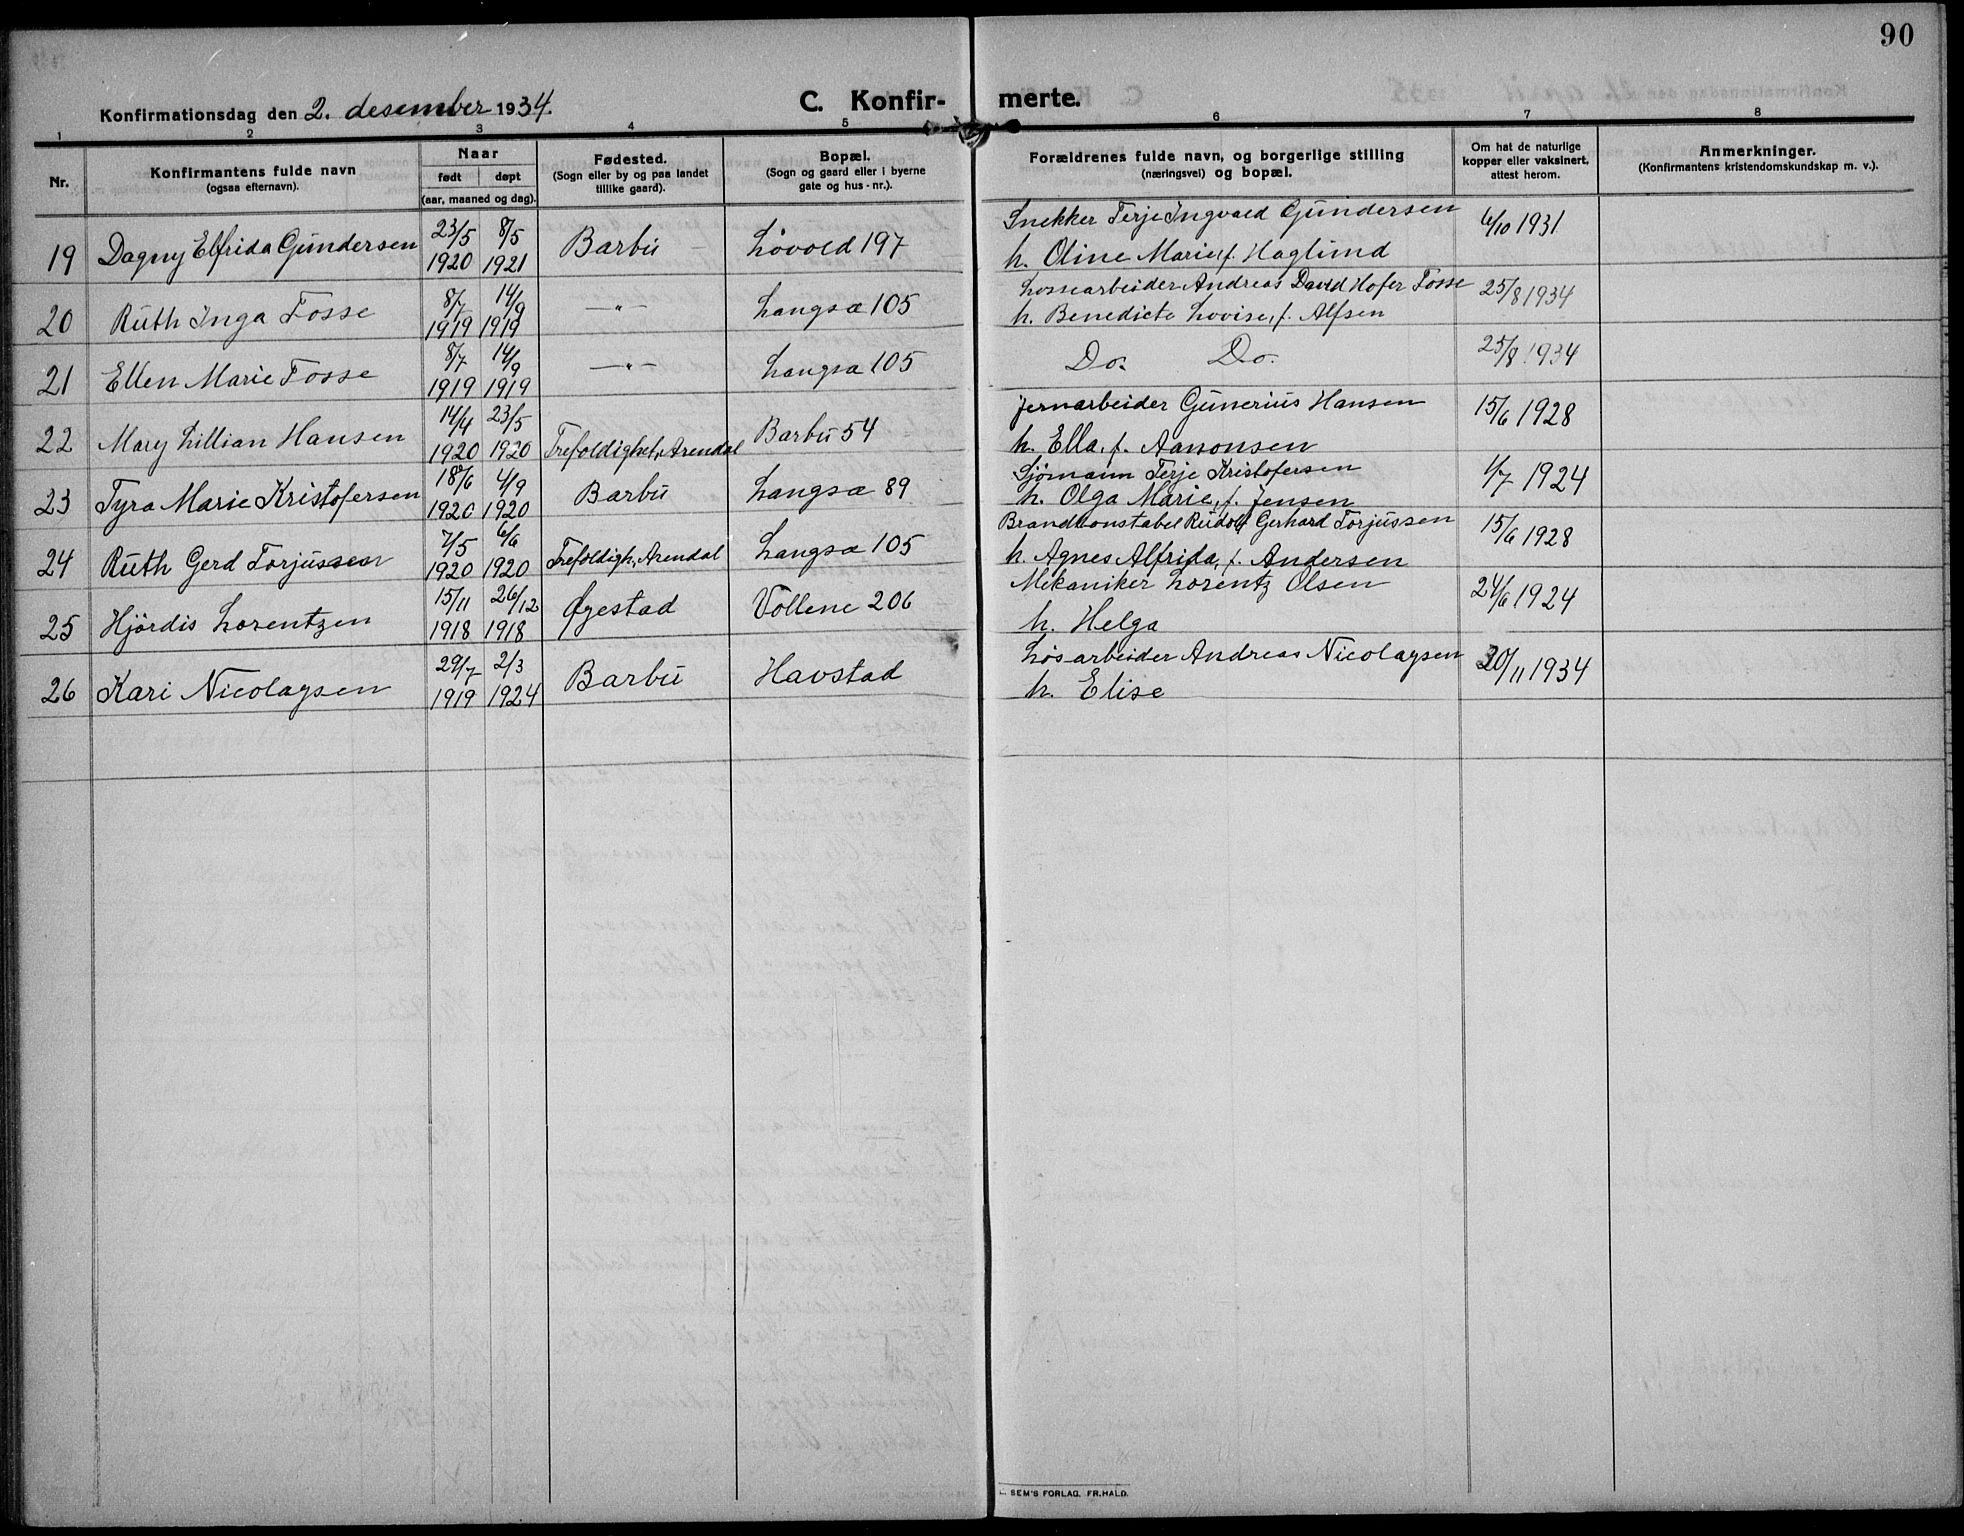 90
Konfirmationsdag den 2. desember 1934.
C. Konfir- merte.
1 2 3 4 5 6 7 8
Nr.
Konfirmantens fulde navn
(ogsaa efternavn).
Naar
født døpt
(aar, maaned og dag).
Fødested.
(Sogn eller by og paa landet
tillike gaard).
Bopæl.
(Sogn og gaard eller i byerne
gate og hus-nr.).
Forældrenes fulde navn, og borgerlige stilling
(næringsvei) og bopæl.
Om hat de naturlige
kopper eller vaksinert,
attest herom.
Anmerkninger.
(Konfirmantens kristendomskundskap m. v.).
19 Dagny Elfrida Gundersen 23/5 1920 8/5 1921 Barbu Løvold 197 Snekker Terje Ingvald Gundersen 6/10 1931
h. Oline Marie, f. Haglund
20 Ruth Inga Fosse 8/7 1919 14/9 1919 —"— Langsæ 105 Lossearbeider Andreas David Hofer Fosse 25/8 1934
h. Benedicte Lovise, f. Alfsen
21 Ellen Marie Fosse 8/7 1919 14/9 1919 —"— Langsæ 105 Do. Do. 25/8 1934
22 Mary Lillian Hansen 14/4 1920 23/5 1920 Trefoldighet, Arendal Barbu 54 Jernarbeider Gunerius Hansen 15/6 1928
h. Ella, f. Aanonsen
23 Tyra Marie Kristofersen 18/6 1920 4/9 1920 Barbu Langsæ 89 Sjømann Terje Kristofersen 1/7 1924
h. Olga Marie, f. Jensen
24 Ruth Gerd Torjussen 7/5 1920 6/6 1920 Trefoldigh, Arendal Langsæ 105 Brandkonstabel Rudolf Gerhard Torjussen 15/6 1928
h. Agnes Alfrida, f. Andersen
25 Hjördis Lorentzen 15/11 1918 26/12 1918 Øyestad Vollene 206 Mekaniker Lorentz Olsen 24/6 1924
h. Helga
26 Kari Nicolaysen 29/7 1919 2/3 1924 Barbu Havstad Løsarbeider Andreas Nicolaysen 30/11 1934
h. Elise
SEM'S FORLAG, FR.HALD.